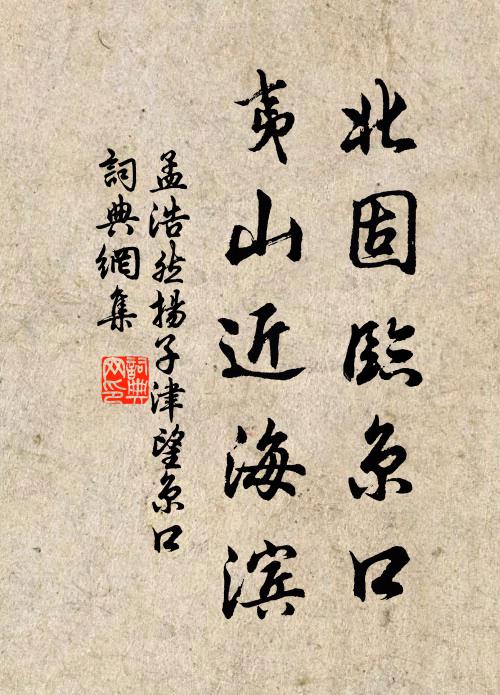 北固臨京口
夷山近海滨
孟浩然揚子津望京口
詞典網集
詞典网印